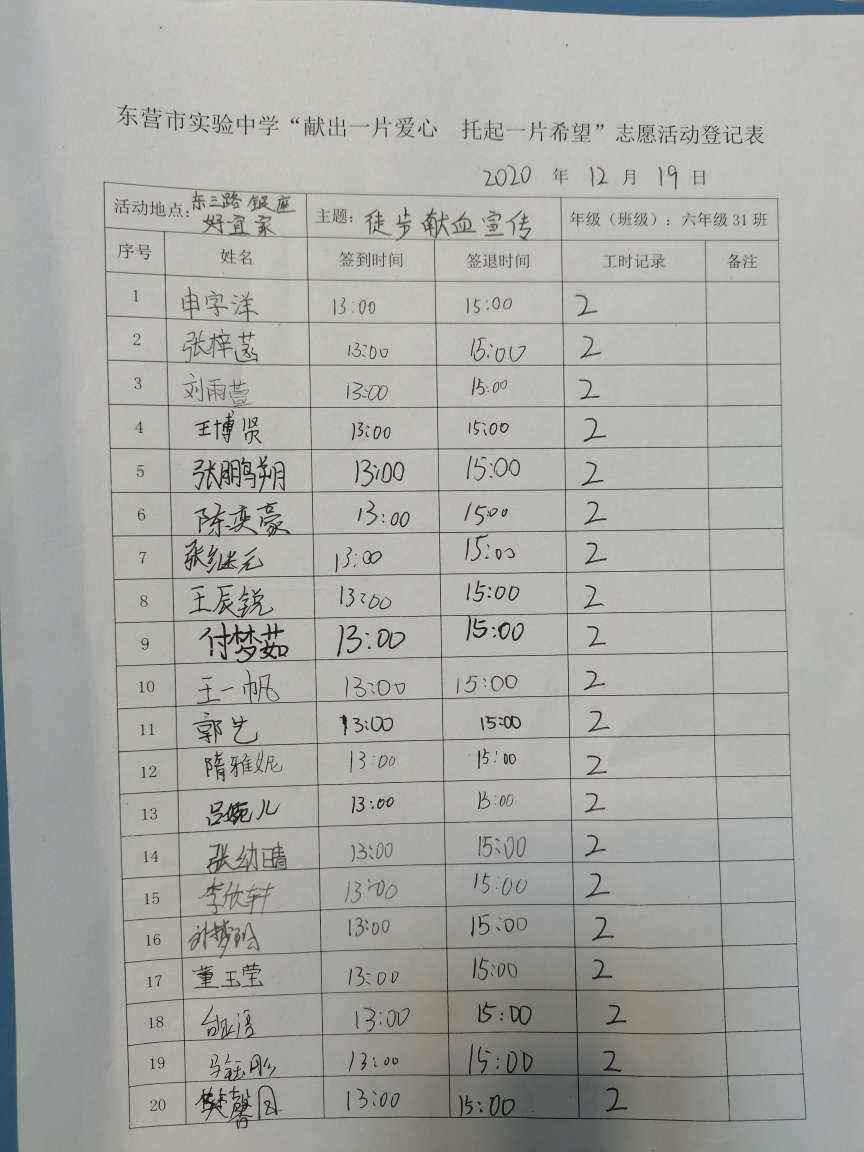 东营市实验中学“献出一片爱心 托起一片希望”志愿活动登记表
2020 年 12 月 19 日
活动地点：东三路银座好宜家 主题：徒步献血宣传 年级（班级）：六年级31班
序号 姓名 签到时间 签退时间 工时记录 备注
1 申宇洋 13:00 15:00 2
2 张梓菡 13:00 15:00 2
3 刘雨萱 13:00 15:00 2
4 王博贤 13:00 15:00 2
5 张鹏翔 13:00 15:00 2
6 陈奕豪 13:00 15:00 2
7 张继元 13:00 15:00 2
8 王辰锐 13:00 15:00 2
9 付梦茹 13:00 15:00 2
10 王一帆 13:00 15:00 2
11 郭艺 13:00 15:00 2
12 隋雅妮 13:00 15:00 2
13 吕婉儿 13:00 15:00 2
14 张幼晴 13:00 15:00 2
15 李欣轩 13:00 15:00 2
16 13:00 15:00 2
17 董玉莹 13:00 15:00 2
18 13:00 15:00 2
19 13:00 15:00 2
20 13:00 15:00 2